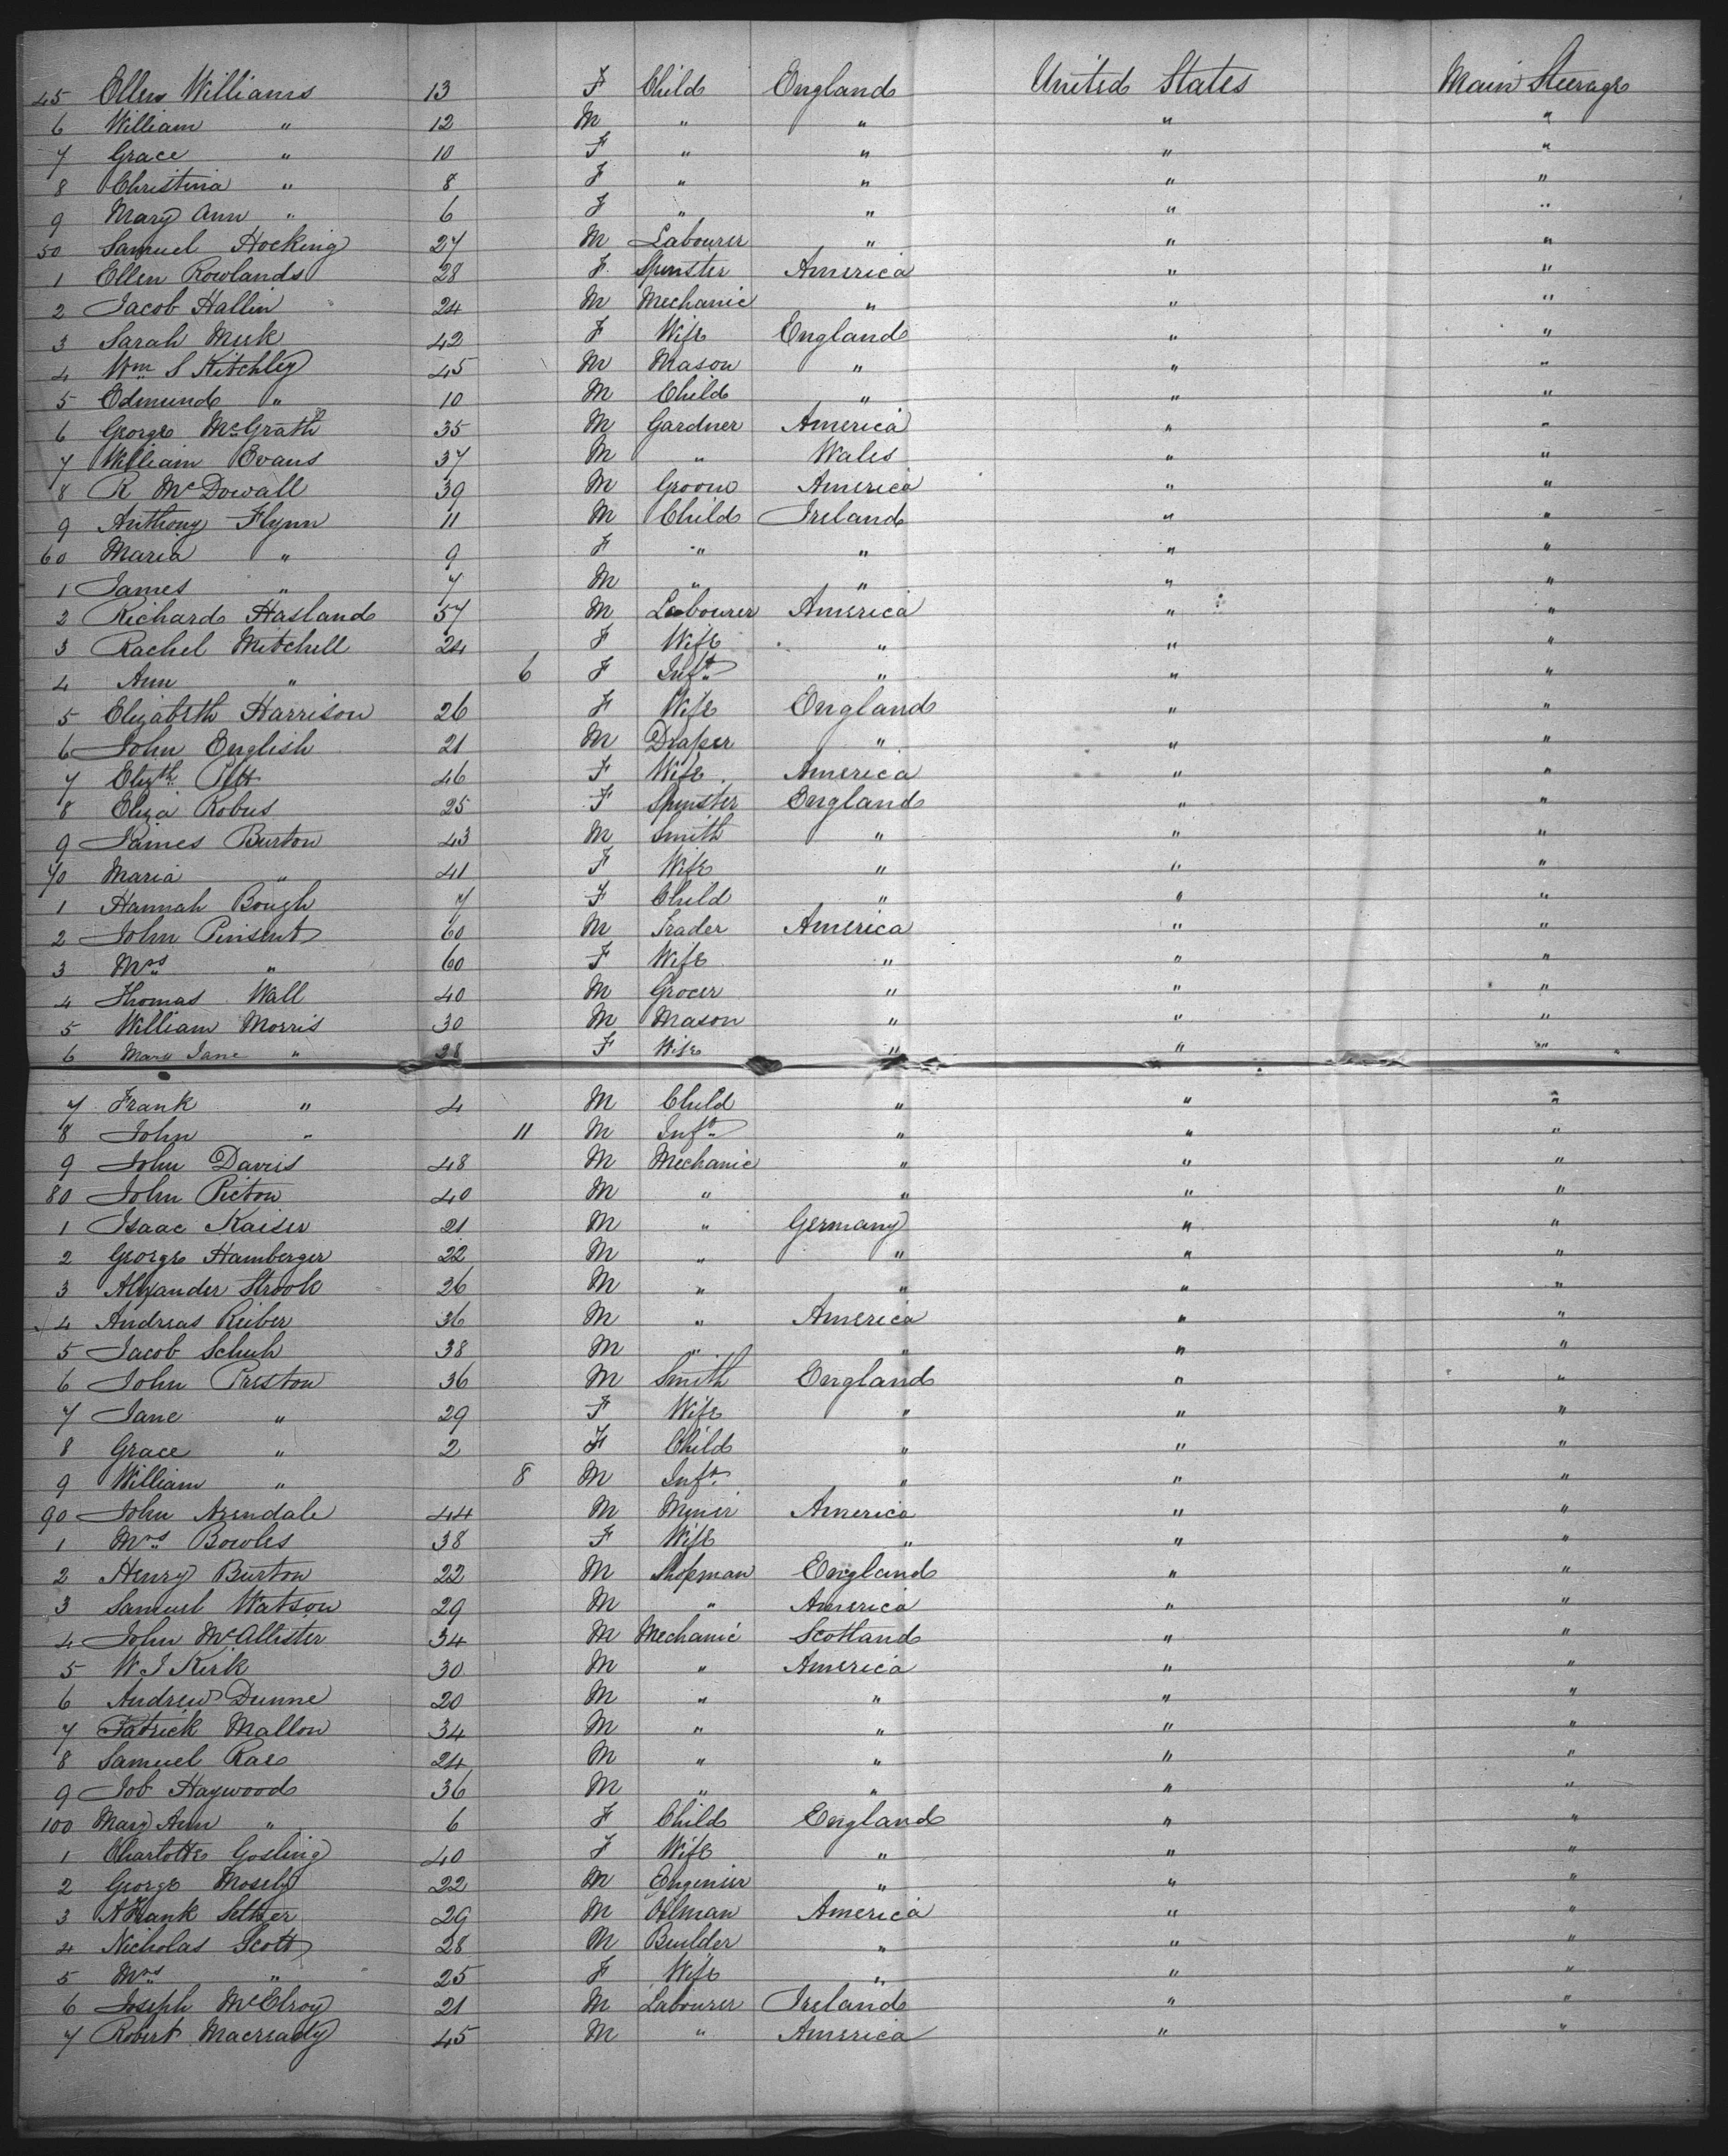 45 Ellen Williams 13 F Child England United States Main Steerage
6 William " 12 M " " " "
7 Grace " 10 F " " " "
8 Christina " 8 F " " " "
9 Mary Ann " 6 F " " " "
50 Samuel Hocking 27 M Labourer " " "
1 Ellen Rowlands 28 F Spinster America " "
2 Jacob Hallin 24 M Mechanic " " "
3 Sarah Meek 42 F Wife England " "
4 Wm S Kitchley 45 M Mason " " "
5 Edmund " 10 M Child " " "
6 George McGrath 35 M Gardner America " "
7 William Evans 37 M " Wales " "
8 R McDowall 39 M Groom America " "
9 Anthony Flynn 11 M Child Ireland " "
60 Maria " 9 F " " " "
1 James " 7 M " " " "
2 Richard Hasland 57 M Labourer America " "
3 Rachel Mitchell 24 F Wife " " "
4 Ann " 6 F Inft " " "
5 Elizabeth Harrison 26 F Wife England " "
6 John English 21 M Draper " " "
7 Elizth 46 F Wife America " "
8 Eliza Robus 25 F Spinster England " "
9 James Burton 43 M Smith " " "
70 Maria " 41 F Wife " " "
1 Hannah Bough 7 F Child " " "
2 John Pinsent 60 M Trader America " "
3 Mrs " 60 F Wife " " "
4 Thomas Wall 40 M Grocer " " "
5 William Morris 30 M Mason " " "
6 Mary Jane " 28 F Wife " " "
7 Frank " 4 M Child " " "
8 John " 11 M Inft " " "
9 John Davis 48 M Mechanic " " "
80 John Picton 40 M " " " "
1 Isaac Kaiser 21 M " Germany " "
2 George Hamberger 22 M " " " "
3 Alexander 26 M " " " "
4 Andreas Reiber 36 M " America " "
5 Jacob Schuh 38 M " " " "
6 John Preston 36 M Smith England " "
7 Jane " 29 F Wife " " "
8 Grace " 2 F Child " " "
9 William " 8 M Inft " " "
90 John Arendale 44 M Miner America " "
1 Mrs Bowles 38 F Wife " " "
2 Henry Burton 22 M Shopman England " "
3 Samuel Watson 29 M " America " "
4 John McAllister 34 M Mechanic Scotland " "
5 W J Kirk 30 M " America " "
6 Andrew Dunne 20 M " " " "
7 Patrick Mallon 34 M " " " "
8 Samuel Rae 24 M " " " "
9 Job Haywood 36 M " " " "
100 Mary Ann " 6 F Child England " "
1 Charlotte Gosling 40 F Wife " " "
2 George Mosely 22 M Engineer " " "
3 Frank 29 M Oilman America " "
4 Nicholas Scott 28 M Builder " " "
5 Mrs " 25 F Wife " " "
6 Joseph McElroy 21 M Labourer Ireland " "
7 Robert Macready 45 M " America " "